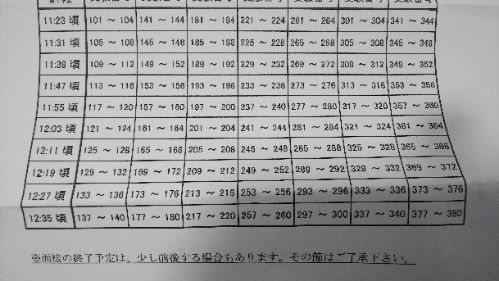 11:23 頃 101 ～ 104 141 ～ 144 181 ～ 184 221 ～ 224 261 ～ 264 301 ～ 304 341 ～ 344
11:31 頃 105 ～ 108 145 ～ 148 185 ～ 188 225 ～ 228 265 ～ 268 305 ～ 308 345 ～ 348
11:39 頃 109 ～ 112 149 ～ 152 189 ～ 192 229 ～ 232 269 ～ 272 309 ～ 312 349 ～ 352
11:47 頃 113 ～ 116 153 ～ 156 193 ～ 196 233 ～ 236 273 ～ 276 313 ～ 316 353 ～ 356
11:55 頃 117 ～ 120 157 ～ 160 197 ～ 200 237 ～ 240 277 ～ 280 317 ～ 320 357 ～ 360
12:03 頃 121 ～ 124 161 ～ 164 201 ～ 204 241 ～ 244 281 ～ 284 321 ～ 324 361 ～ 364
12:11 頃 125 ～ 128 165 ～ 168 205 ～ 208 245 ～ 248 285 ～ 288 325 ～ 328 365 ～ 368
12:19 頃 129 ～ 132 169 ～ 172 209 ～ 212 249 ～ 252 289 ～ 292 329 ～ 332 369 ～ 372
12:27 頃 133 ～ 136 173 ～ 176 213 ～ 216 253 ～ 256 293 ～ 296 333 ～ 336 373 ～ 376
12:35 頃 137 ～ 140 177 ～ 180 217 ～ 220 257 ～ 260 297 ～ 300 337 ～ 340 377 ～ 380
※面接の終了予定は、少し前後する場合もあります。その節はご了承下さい。